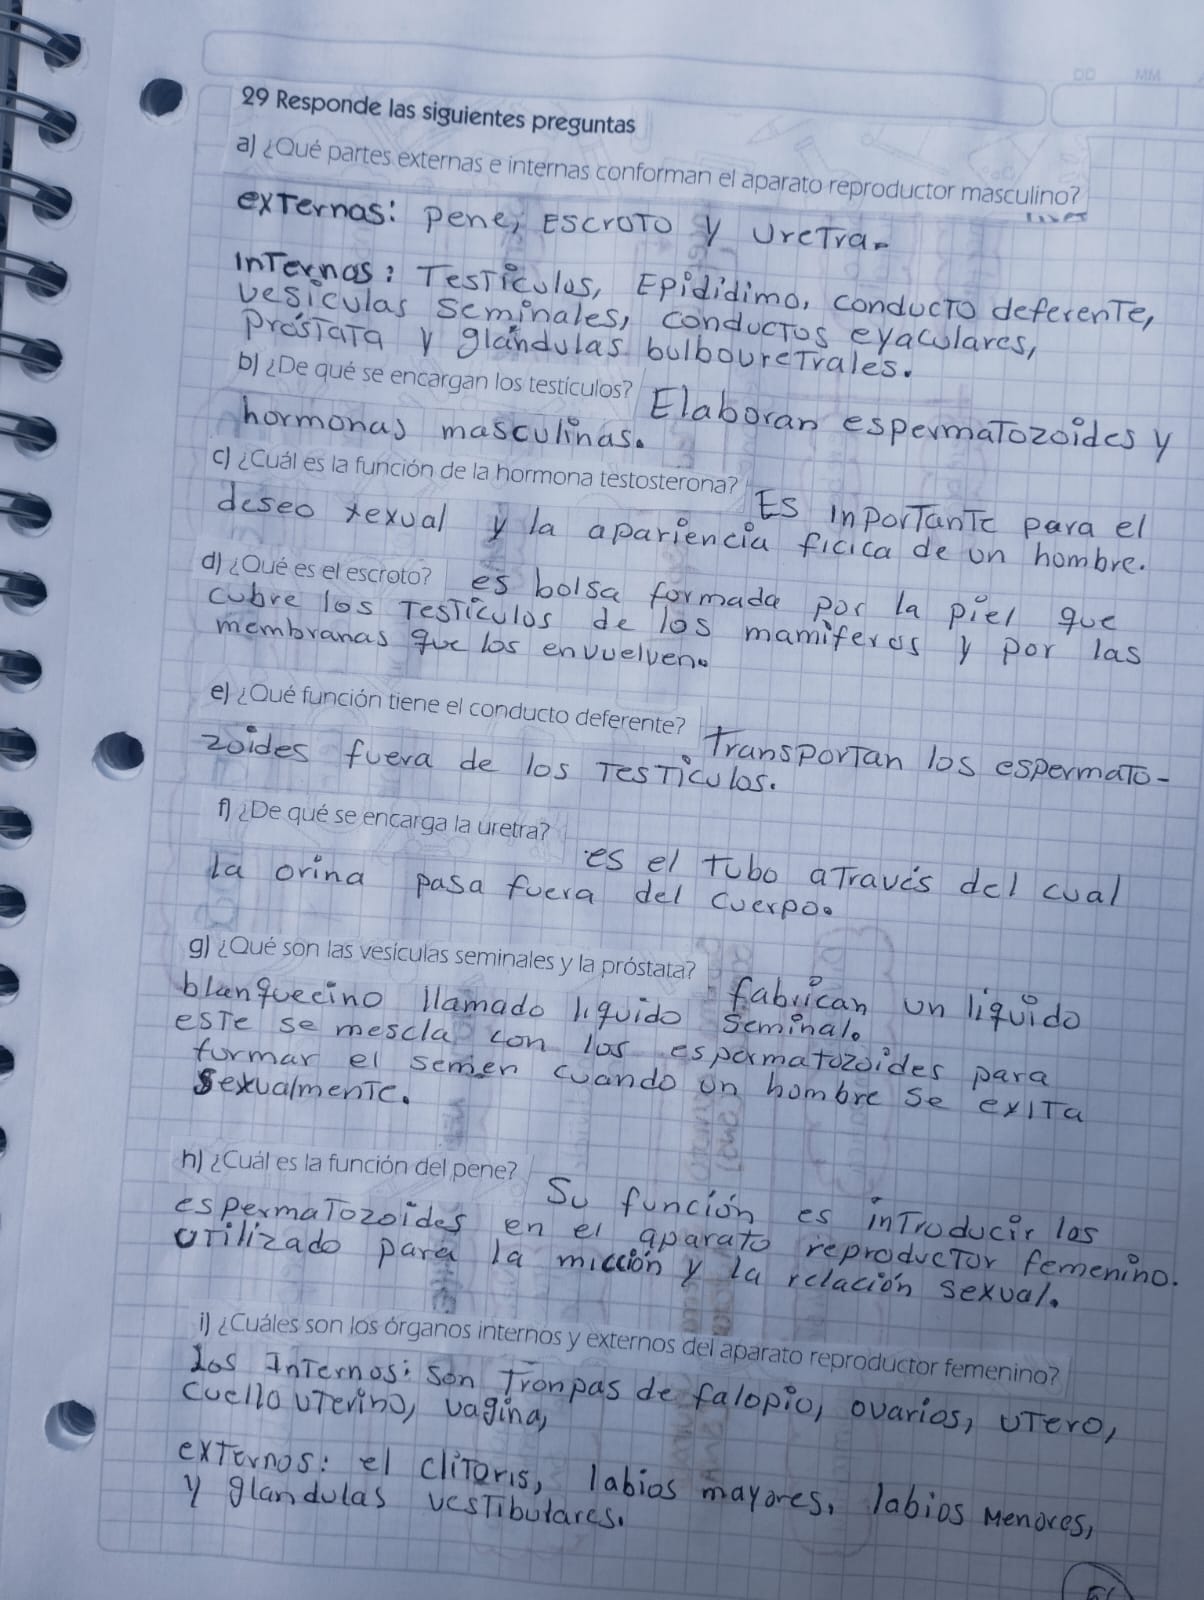 DD MM
29 Responde las siguientes preguntas
a) ¿Qué partes externas e internas conforman el aparato reproductor masculino?
exTernas: pene, EscroTo y UreTra.
InTernas: TesTículos, Epidídimo, conducTo deferenTe,
vesiculas seminales, conducTos eyaculares,
prósTaTa y glándulas bulboureTrales.
b) ¿De qué se encargan los testículos? Elaboran espermaTozoides y
hormonas masculinas.
c) ¿Cuál es la función de la hormona testosterona? Es inporTanTe para el
deseo sexual y la apariencia ficica de un hombre.
d) ¿Qué es el escroto? es bolsa formada por la piel que
cubre los TesTículos de los mamíferos y por las
membranas que los envuelven.
e) ¿Qué función tiene el conducto deferente? TransporTan los espermaTo-
zoides fuera de los TesTículos.
f) ¿De qué se encarga la uretra? es el tubo aTravés del cual
la orina pasa fuera del cuerpo.
g) ¿Qué son las vesículas seminales y la próstata? fabrican un liquido
blanquecino llamado liquido seminal.
esTe se mescla con los espermatozoides para
formar el semen cuando un hombre se exiTa
sexualmenTe.
h) ¿Cuál es la función del pene? Su función es inTroducir los
espermaTozoides en el aparato reproducTor femenino.
uTilizado para la micción y la relación sexual.
i) ¿Cuáles son los órganos internos y externos del aparato reproductor femenino?
Los InTernos: son Tronpas de falopio, ovarios, uTero,
cuello uTerino, vagina,
exTernos: el cliToris, labios mayores, labios menores,
y glandulas vesTibulares.